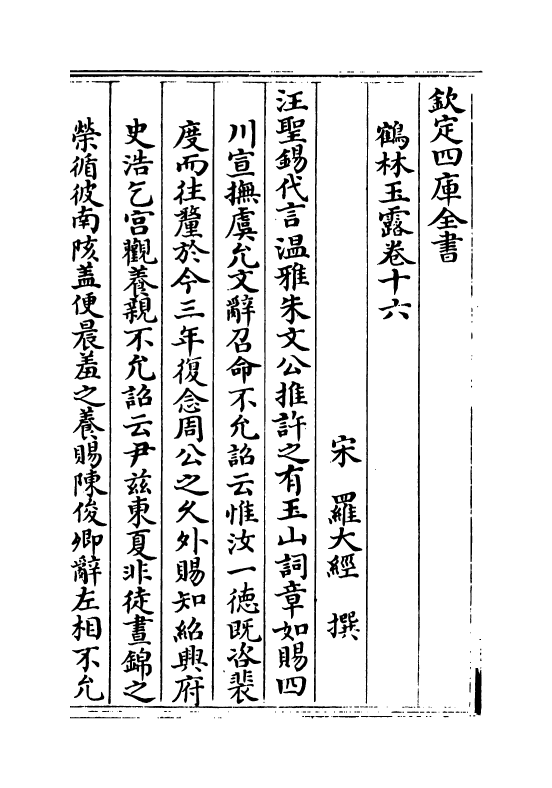 欽定四庫全書
鶴林玉露卷十六
宋 羅大經 撰
汪聖錫代言温雅朱文公推許之有玉山詞章如賜四
川宣撫虞允文辭召命不允詔云惟汝一徳既咨裴
度而往釐於今三年復念周公之久外賜知紹興府
史浩乞宮觀養親不允詔云尹兹東夏非徒晝錦之
榮循彼南陔蓋便晨羞之養賜陳俊卿辭左相不允